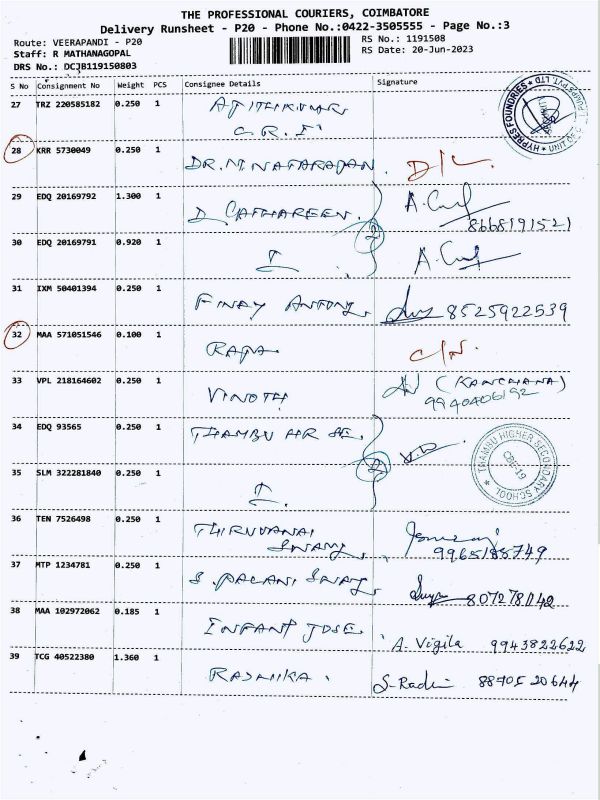 THE PROFESSIONAL COURIERS, COIMBATORE
Delivery Runsheet - P20 - Phone No.:0422-3505555 - Page No.:3
Route: VEERAPANDI - P20
RS No.: 1191508
Staff: R MATHANAGOPAL
RS Date: 20-Jun-2023
DRS No.: DCJB119150803
S No Consignment No Weight PCS Consignee Details Signature
27 TRZ 220585182 0.250 1 AJITHKUMAR
C.R.I
HYPRES FOUNDRIES
28 KRR 5730049 0.250 1 DR.N.NATARAJAN. D/L
29 EDQ 20169792 1.300 1 D. CATHAREEN.
8668191521
30 EDQ 20169791 0.920 1
2
31 IXM 50401394 0.250 1 FINAY ANTONY 8525922539
32 MAA 571051546 0.100 1 RAJA. C/N.
33 VPL 218164602 0.250 1 VINOTH (KANCHANA)
9940406192
34 EDQ 93565 0.250 1 THAMBU HR SE.
THAMBU HIGHER SECONDARY SCHOOL
CBE-19
35 SLM 322281840 0.250 1
2
36 TEN 7526498 0.250 1
SWAMY
9965185749
37 MTP 1234781 0.250 1 S. PALANI SWAMY
38 MAA 102972062 0.185 1 INFANT JOSE. A. Vigila 9943822622
39 TCG 40522380 1.360 1 RAJANIKA. S-Radhi 88705 20644